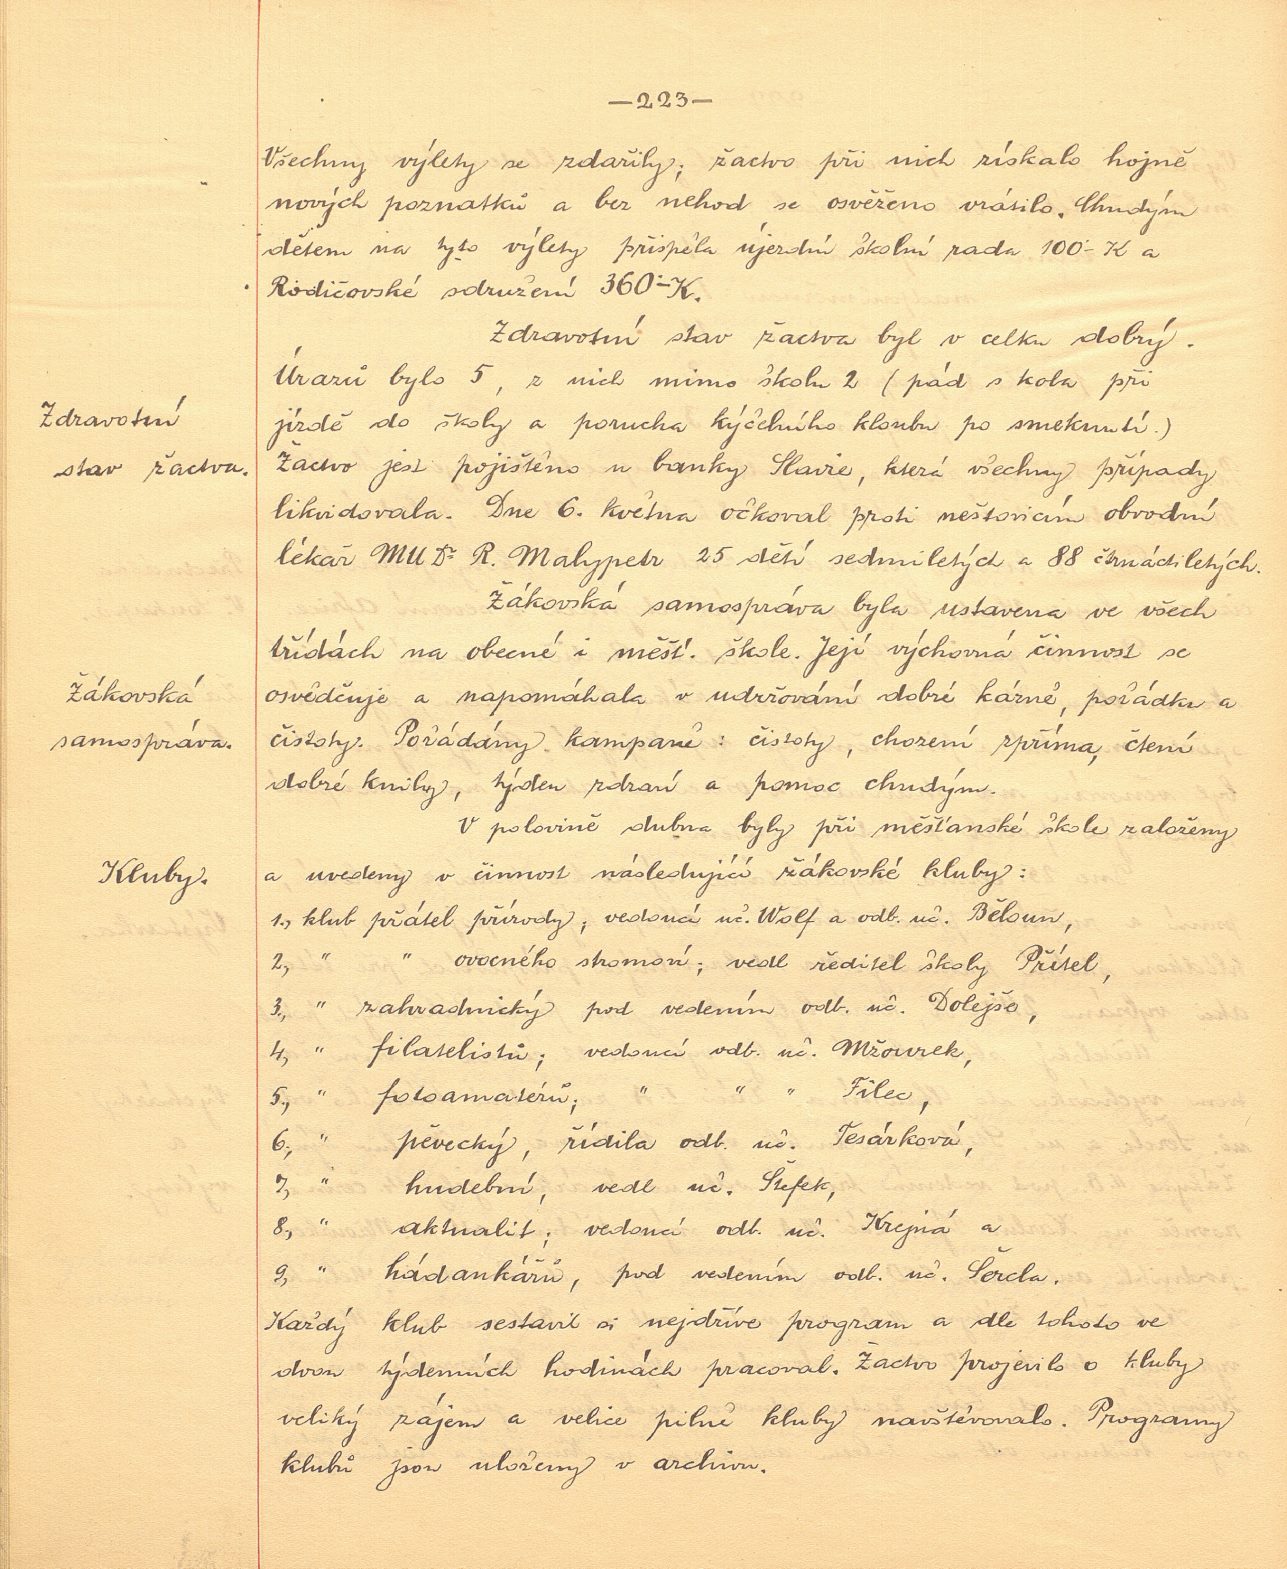 —223—
Všechny výlety se zdařily; žactvo při nich získalo hojně
nových poznatků a bez nehod se osvěženo vrátilo. Chudým
dětem na tyto výlety přispěla újezdní školní rada 100·- K a
Rodičovské sdružení 360·-K.
Zdravotní stav žactva byl v celku dobrý.
Úrazů bylo 5, z nich mimo školu 2 (pád s kola při
Zdravotní
jízdě do školy a porucha kýčelního kloubu po smeknutí.)
stav žactva.
Žactvo jest pojištěno u banky Slavie, která všechny případy
likvidovala. Dne 6. května očkoval proti neštovicím obvodní
lékař MUDr R. Malypetr 25 dětí sedmiletých a 88 čtrnáctiletých.
Žákovská samospráva byla ustavena ve všech
třídách na obecné i měšť. škole. Její výchovná činnost se
Žákovská
osvědčuje a napomáhala v udržování dobré kázně, pořádku a
samospráva.
čistoty. Pořádány kampaně: čistoty, chození zpříma, čtení
dobré knihy, týden zdraví a pomoc chudým.
V polovině dubna byly při měšťanské škole založeny
Kluby.
a uvedeny v činnost následující žákovské kluby:
1., klub přátel přírody; vedoucí uč. Wolf a odb. uč. Běloun,
2., " " ovocného stromoví; vedl ředitel školy Přítel,
3., " zahradnický pod vedením odb. uč. Dolejše,
4., " filatelistů; vedoucí odb. uč. Mžourek,
5., " fotoamatérů; " " " Filec,
6., " pěvecký, řídila odb. uč. Tesárková,
7., " hudební, vedl uč. Štefek,
8., " aktualit; vedoucí odb. uč. Krejná a
9., " hádankářů, pod vedením odb. uč. Šercla.
Každý klub sestavil si nejdříve program a dle tohoto ve
dvou týdenních hodinách pracoval. Žactvo projevilo o kluby
veliký zájem a velice pilně kluby navštěvovalo. Programy
klubů jsou uloženy v archivu.